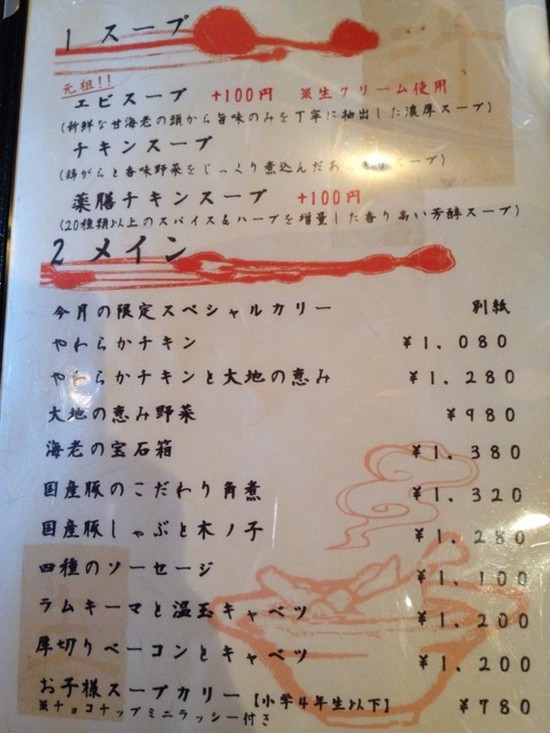 1 スープ
元祖!!
エビスープ +100円 ※生クリーム使用
(新鮮な甘海老の頭から旨味のみを丁寧に抽出した濃厚スープ)
チキンスープ
(鶏がらと香味野菜をじっくり煮込んだあ スープ)
薬膳チキンスープ +100円
(20種類以上のスパイス&ハーブを増量した香り高い芳醇スープ)
2 メイン
今月の限定スペシャルカリー 別紙
やわらかチキン ¥1,080
やわらかチキンと大地の恵み ¥1,280
大地の恵み野菜 ¥980
海老の宝石箱 ¥1,380
国産豚のこだわり角煮 ¥1,320
国産豚しゃぶと木ノ子 ¥1,280
四種のソーセージ ¥1,100
ラムキーマと温玉キャベツ ¥1,200
厚切りベーコンとキャベツ ¥1,200
お子様スープカリー【小学4年生以下】 ¥780
※チョコチップミニラッシー付き